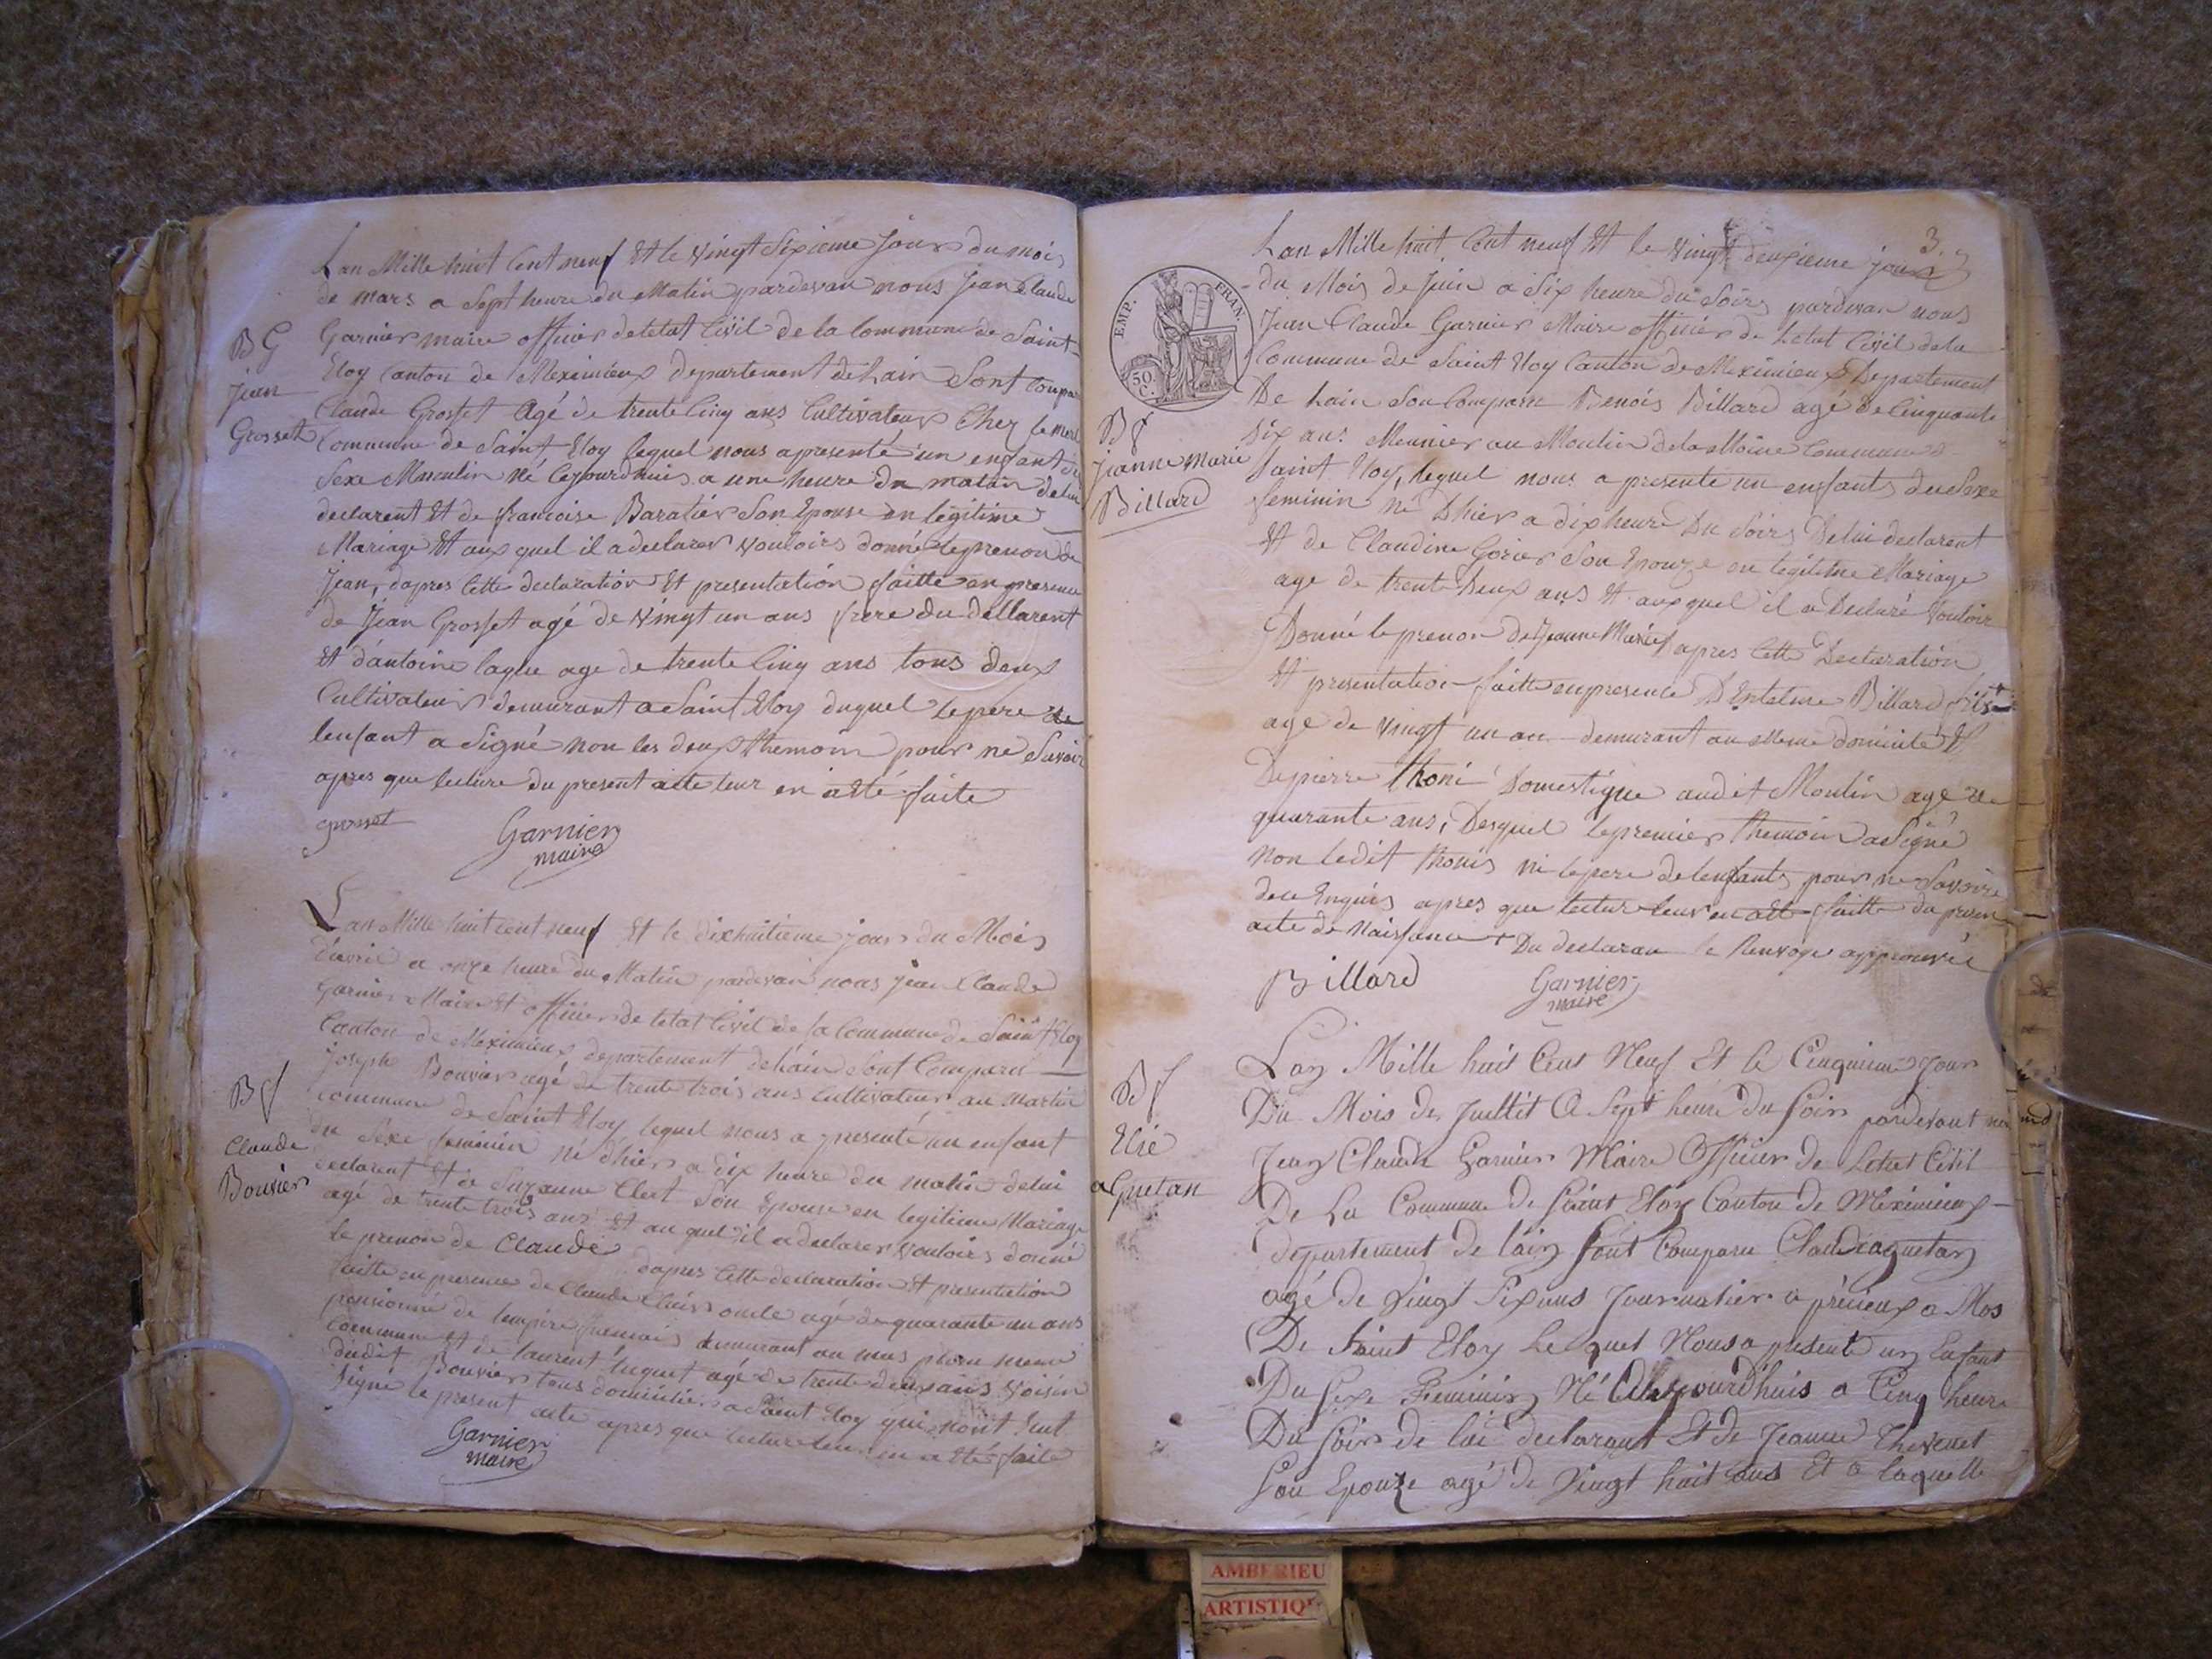 Lan Mille huit Cent neuf Et le Vingt Sixieme Jour du mois
de mars a Sept heure du Matin pardevan nous Jean Claude
Garnier maire officier de letat Civil de la Commune de Saint
Eloy Canton de Meximieux Departement de Lain Sont Compar
Claude Grosset Agé de trente Cinq ans Cultivateur Chez
Commune de Saint Eloy lequel nous a presenté un enfant du
Sexe Masculin Né Cejourdhuis a une heure du matin de lui
declarent Et de francoise Baratier Son Epouse en legitime
Mariage Et aux quel il a declarer vouloirs donné le prenon de
Jean, dapres Cette declaration Et presentation faitte en presence
de Jean Grosset agé de Vingt un ans frere du dellarent
Et dantoine lague age de trente Cinq ans tous deux
Cultivateur demurant a Saint Eloy duquel le pere de
lenfant a Signé non les deux themoin pour ne Savoir
apres que lecture du present acte leur en a Eté faite
grosset
Garnier
maire
B G
jean
Grosset
Lan Mille huit Cent neuf Et le dixhuitieme jour du Mois
davril a onze heure du Matin pardevan nous jean Claude
Garnier Maire Et officier de letat Civil de la Commune de Saint Eloy
Canton de Meximieux departement de Lain Sont Comparu
joseph Bouvier agé de trente trois ans Cultivateur au Martin
commune de Saint Eloy lequel nous a presenté un enfant
du Sexe feminin né dhier a dix heure du matin de lui
declarent Et de Suzanne Clert Son Epouse en legitime Mariage
agé de trente trois ans Et au quel il a declarer vouloirs donné
le prenon de Claude dapres Cette declaration Et presentation
faitte en presence de Claude oncle agé de quarante un ans
pensionné de lempire francais demurant au mas meme
commune Et de laurent luquet agé de trente deux ans voisin
dudit Bouvier tous domicilier a Saint Eloy qui nont Sut
Signé le present acte apres que lecture leur en a Eté faite
Garnier
maire
B f
Claude
Bouvier
3.
Lan Mille huit Cent neuf Et le Vingt deuxieme jour
du Mois de Juin a Six heure du Soirs pardevan nous
Jean Claude Garnier Maire officier de Letat Civil de la
Commune de Saint Eloy Canton de Meximieux Departement
De Lain Son Comparu Benois Billard agé de Cinquante
Six ans Meunier au Moulin de la Moine Commune
Saint Eloy, lequel nous a presente un enfants du Sexe
feminin né Dhier a dix heure Du Soirs De lui declarent
Et de Claudine Gorier Son Epouze en legitime Mariage
age de trente Deux ans Et aux quel il a Declaré Vouloir
Donné le prenon De Jeanne Marie apres Cette Declaration
Et presentation faitte en presence Billard fils +
age de Vingt un an demurant au Meme domicile Et
De pierre Thoni Domestique audit Moulin agé de
quarante ans, Desquel le premier themoin a Signé
Non ledit thonis ni le pere de lenfants pour ne Savoire
de ce Enquis apres que lecture leur en a Eté faitte du presen
acte de Naissance + Du declaran le Renvoye approuvée
Billard
Garnier
maire
EMP. FRAN.
50. C.
B f
jeanne Marie
Billard
Lan Mille huit Cent Neuf Et le Cinquieme Jour
Du Mois de Juillet a Sept heure du Soir pardevant nou
Jean Claude Garnier Maire Officier de Letat Civil
De La Commune de Saint Eloy Canton de Meximieux
departement de lain Sont Comparu Claude aguetan
agé de Vingt Six ans Journalier a prieux a Mos
De Saint Eloy Le quel Nous a presenté un Enfant
Du Sexe Feminin Né Aujourdhuis a Cinq heure
Du Soir de lui declarant Et de Jeanne Thevenet
Son Epouze agé de Vingt huit ans Et a laquelle
B f
Elie
aGuetan
AMBERIEU
ARTISTIQ